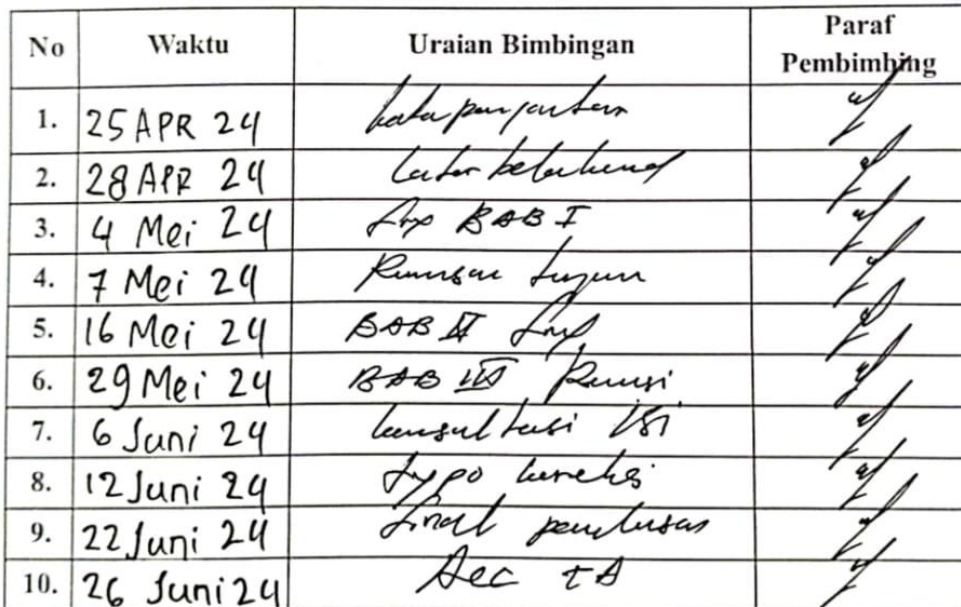 No Waktu Uraian Bimbingan Paraf Pembimbing
1. 25 APR 24 kata pengantar
2. 28 APR 24 latar belakang
3. 4 Mei 24 BAB I
4. 7 Mei 24 Rumusan tujuan
5. 16 Mei 24 BAB II
6. 29 Mei 24 BAB III Revisi
7. 6 Juni 24 konsultasi isi
8. 12 Juni 24 typo koreksi
9. 22 Juni 24 final penulisan
10. 26 Juni 24 Acc TA